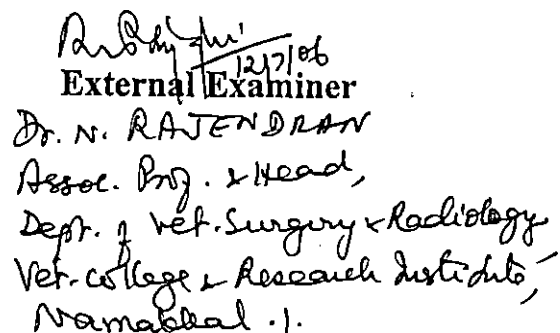 12/7/06
External Examiner
Dr. N. RAJENDRAN
Assoc. Prof. & Head,
Dept. of Vet. Surgery & Radiology
Vet. College & Research Institute,
Namakkal.1.